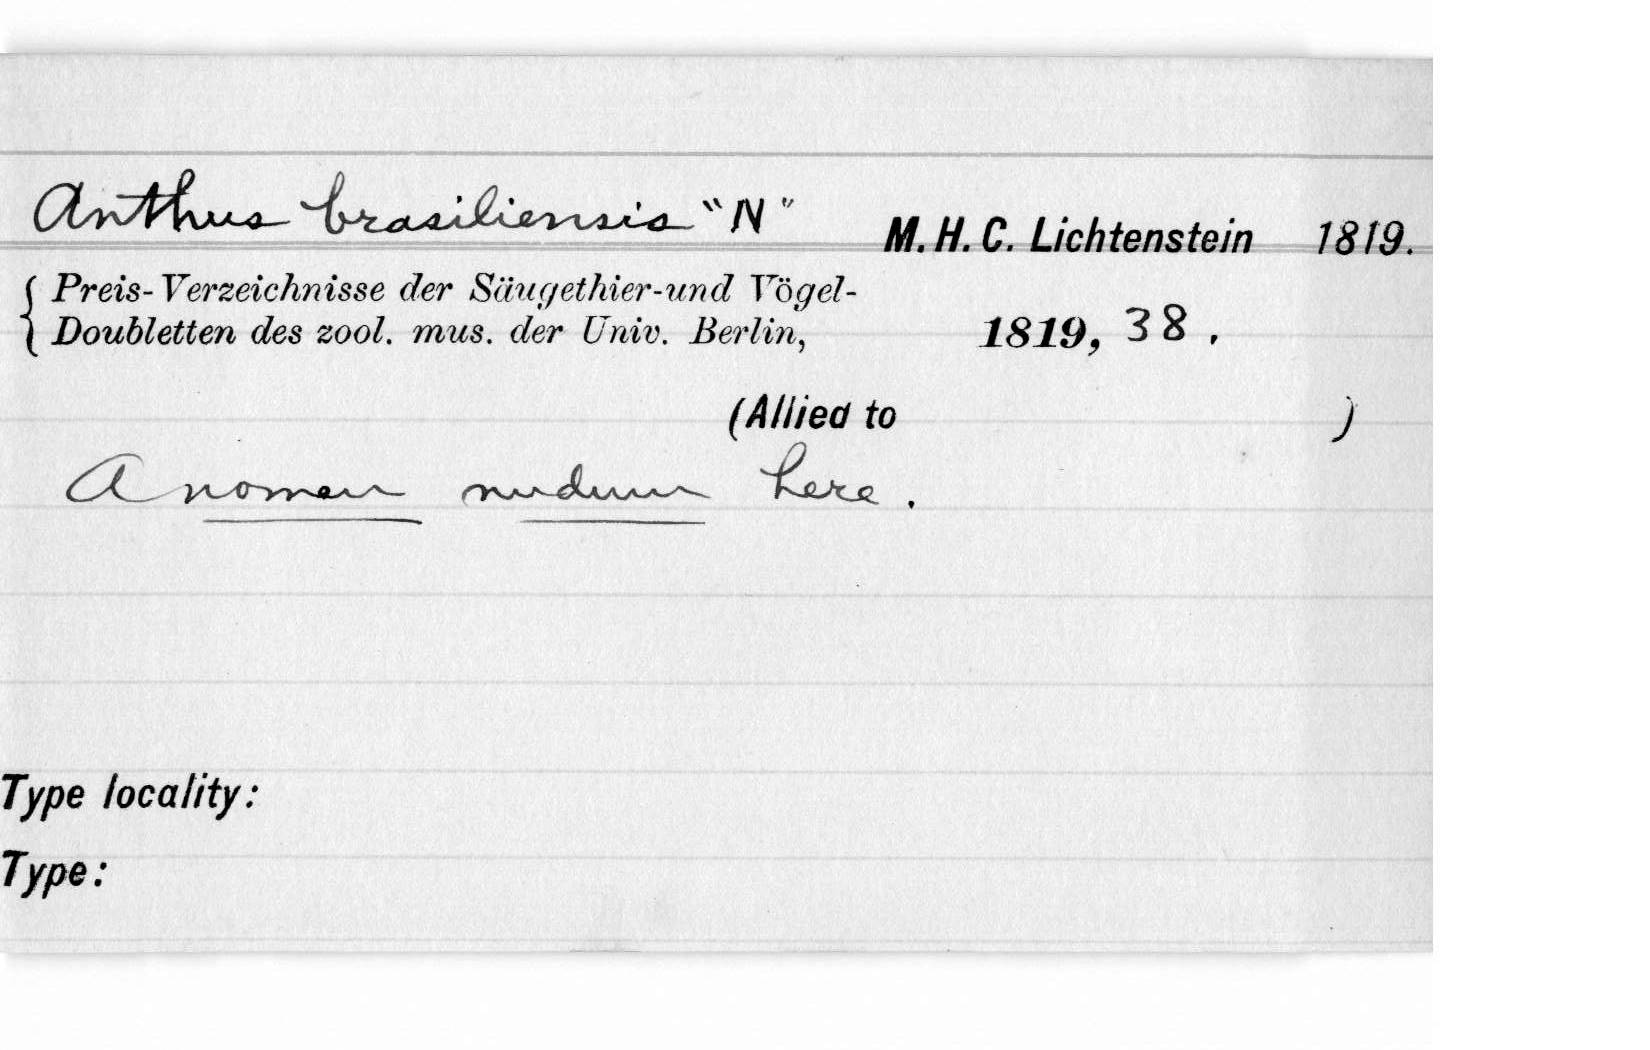 Anthus brasiliensis "N" M. H. C. Lichtenstein 1819.
{ Preis-Verzeichnisse der Säugethier-und Vögel-
Doubletten des zool. mus. der Univ. Berlin, 1819, 38.
(Allied to )
A nomen nudum here.
Type locality:
Type: